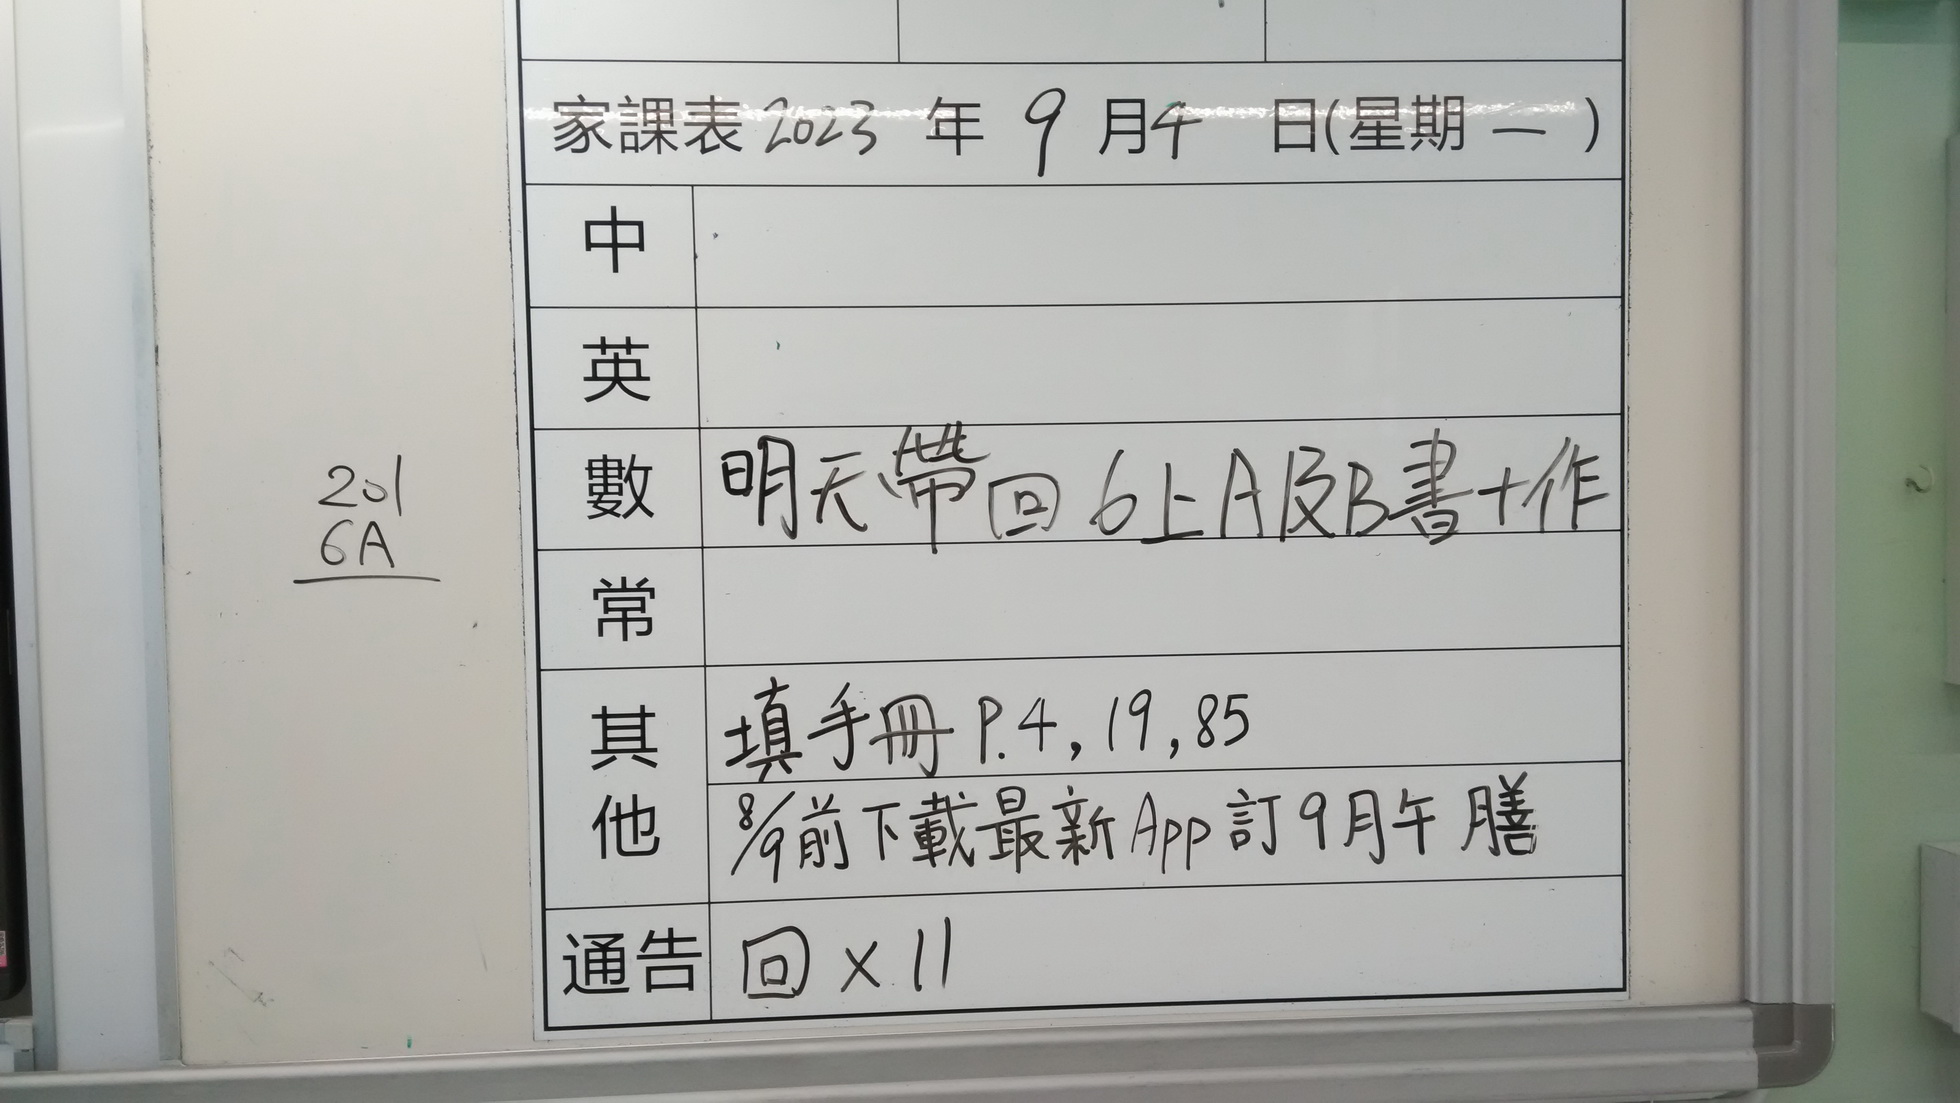 家課表 2023 年 9 月 4 日(星期 一 )
中
英
數 明天帶回 6上A及B書+作
常
其他 填手冊 P.4, 19, 85
8/9前下載最新App訂9月午膳
通告 回 x 11
201
6A